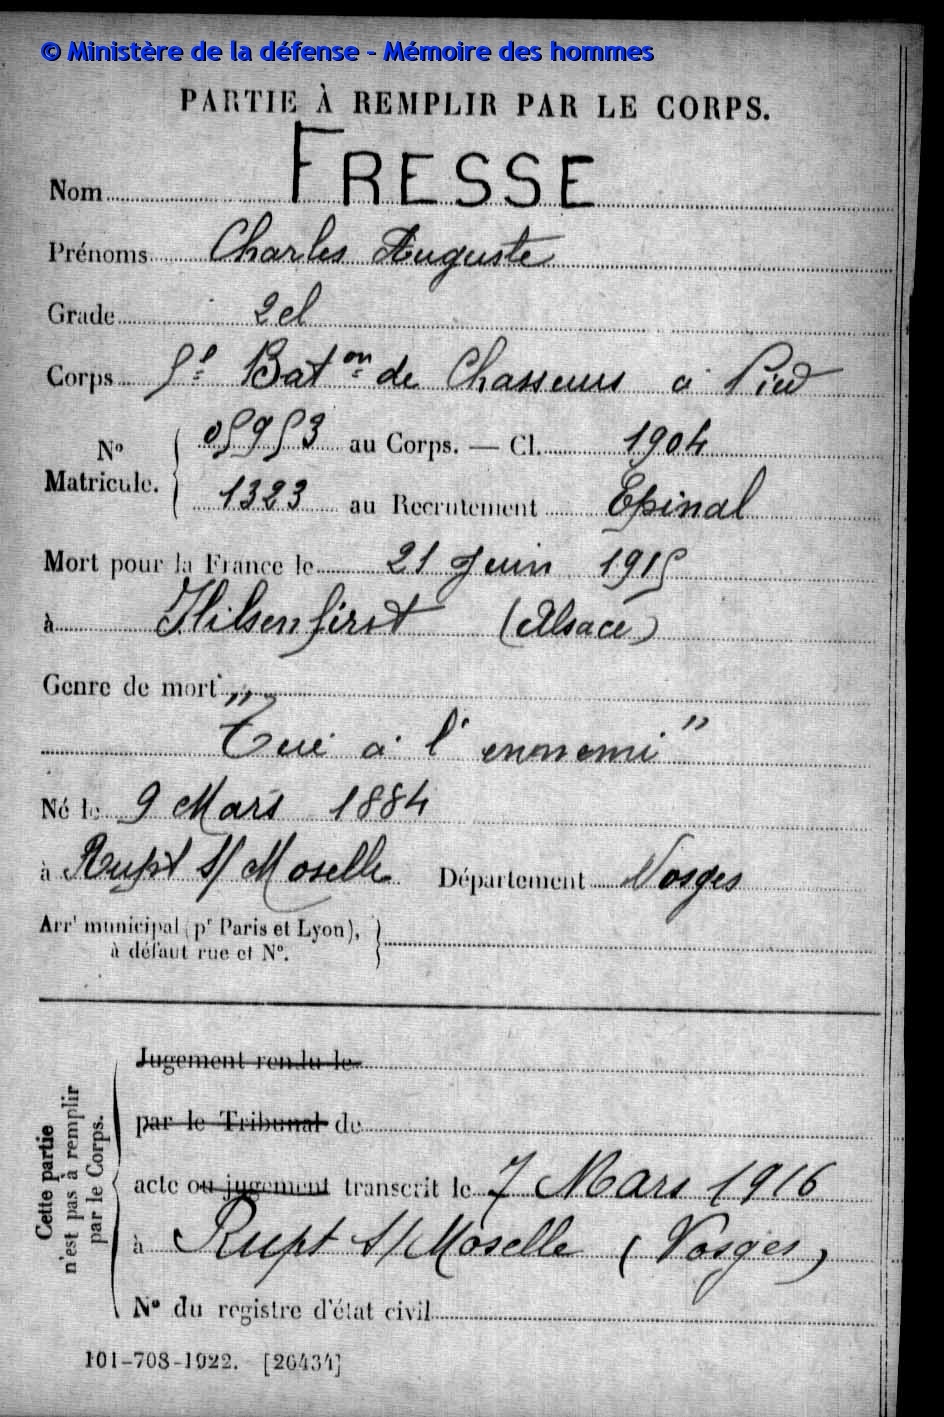 © Ministère de la défense - Mémoire des hommes
PARTIE À REMPLIR PAR LE CORPS.
Nom FRESSE
Prénoms Charles Auguste
Grade 2cl
Corps 5e Baton de Chasseurs à Pied
No Matricule. { 05953 au Corps. — Cl. 1904
1323 au Recrutement Epinal
Mort pour la France le 21 Juin 1915
à Hilsenfirst (Alsace)
Genre de mort
"Tué à l'ennemi"
Né le 9 Mars 1884
à Rupt s/ Moselle Département Vosges
Arrt municipal (pr Paris et Lyon), }
à défaut rue et No.
Cette partie n'est pas à remplir par le Corps.
Jugement rendu le
par le Tribunal de
acte ou jugement transcrit le 7 Mars 1916
à Rupt s/ Moselle (Vosges)
No du registre d'état civil
101-708-1922. [26434]